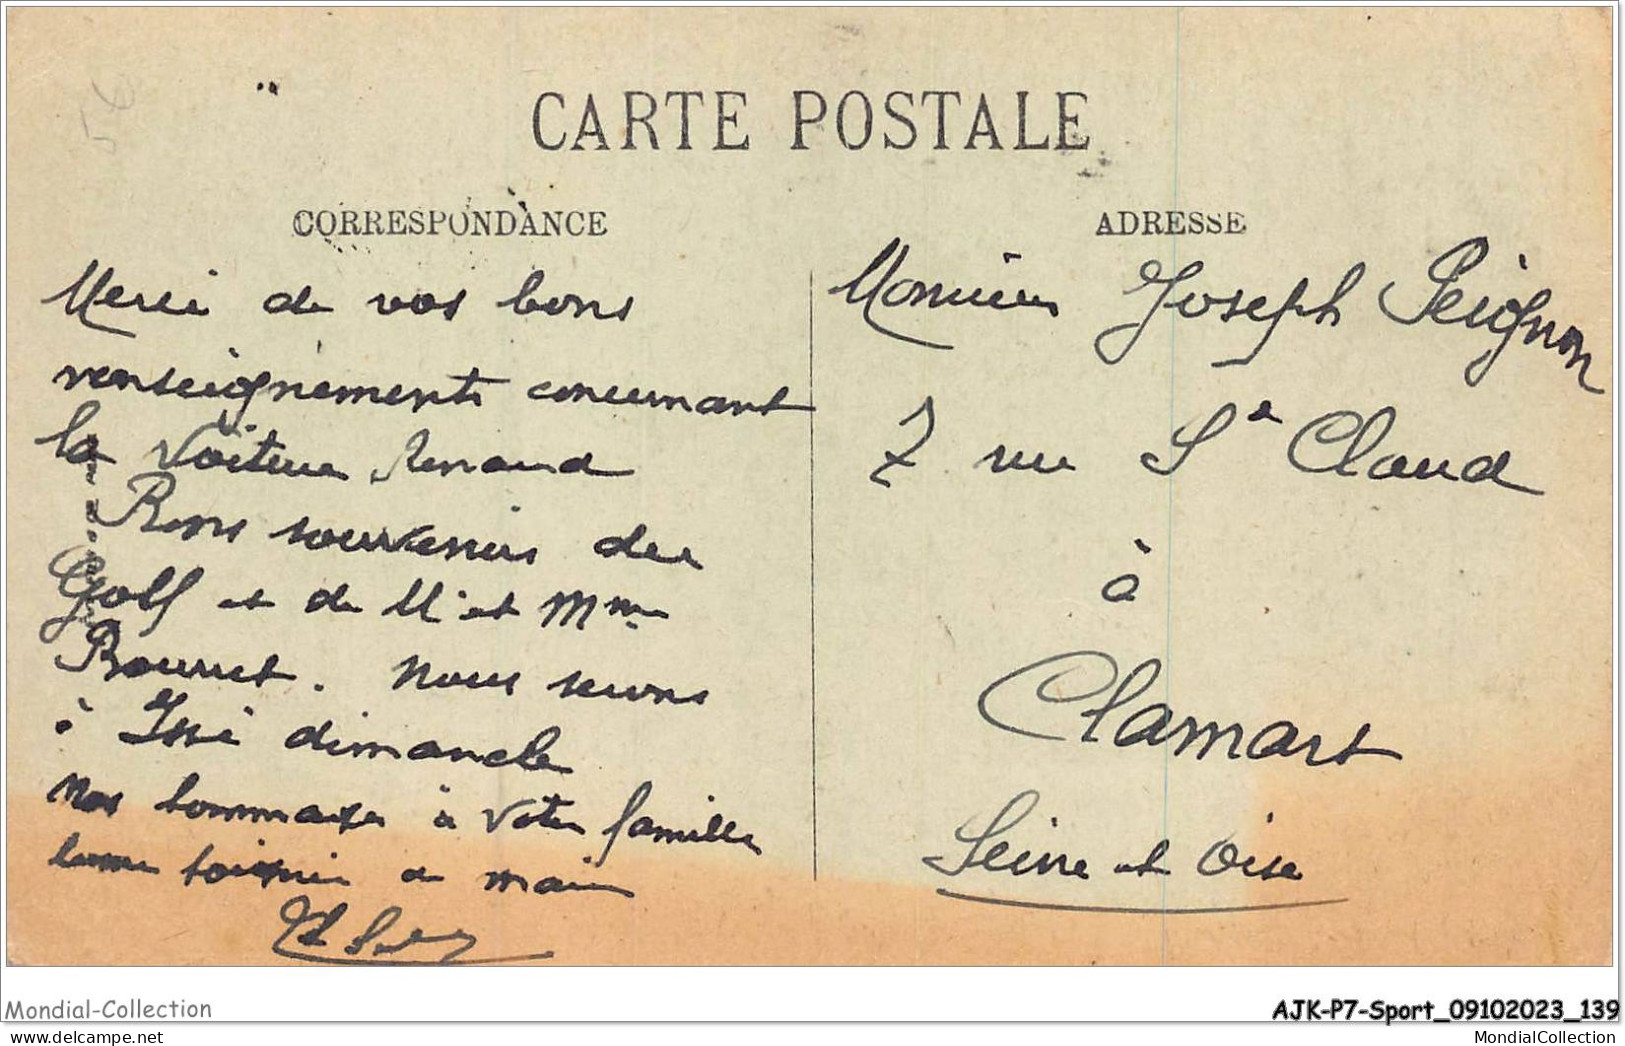 56
CARTE POSTALE
CORRESPONDANCE
Merci de vos bons
renseignements concernant
la voiture Renaud
Bons souvenirs du
Golf et de M. et Mme
Bourret. Nous serons
à Issi dimanche
Nos hommages à votre famille
bonne poignée de main
ADRESSE
Monsieur Joseph Peignon
7 rue St Cloud
à
Clamart
Seine et Oise
Mondial-Collection
AJK-P7-Sport_09102023_139
delcampe.net
MondialCollection